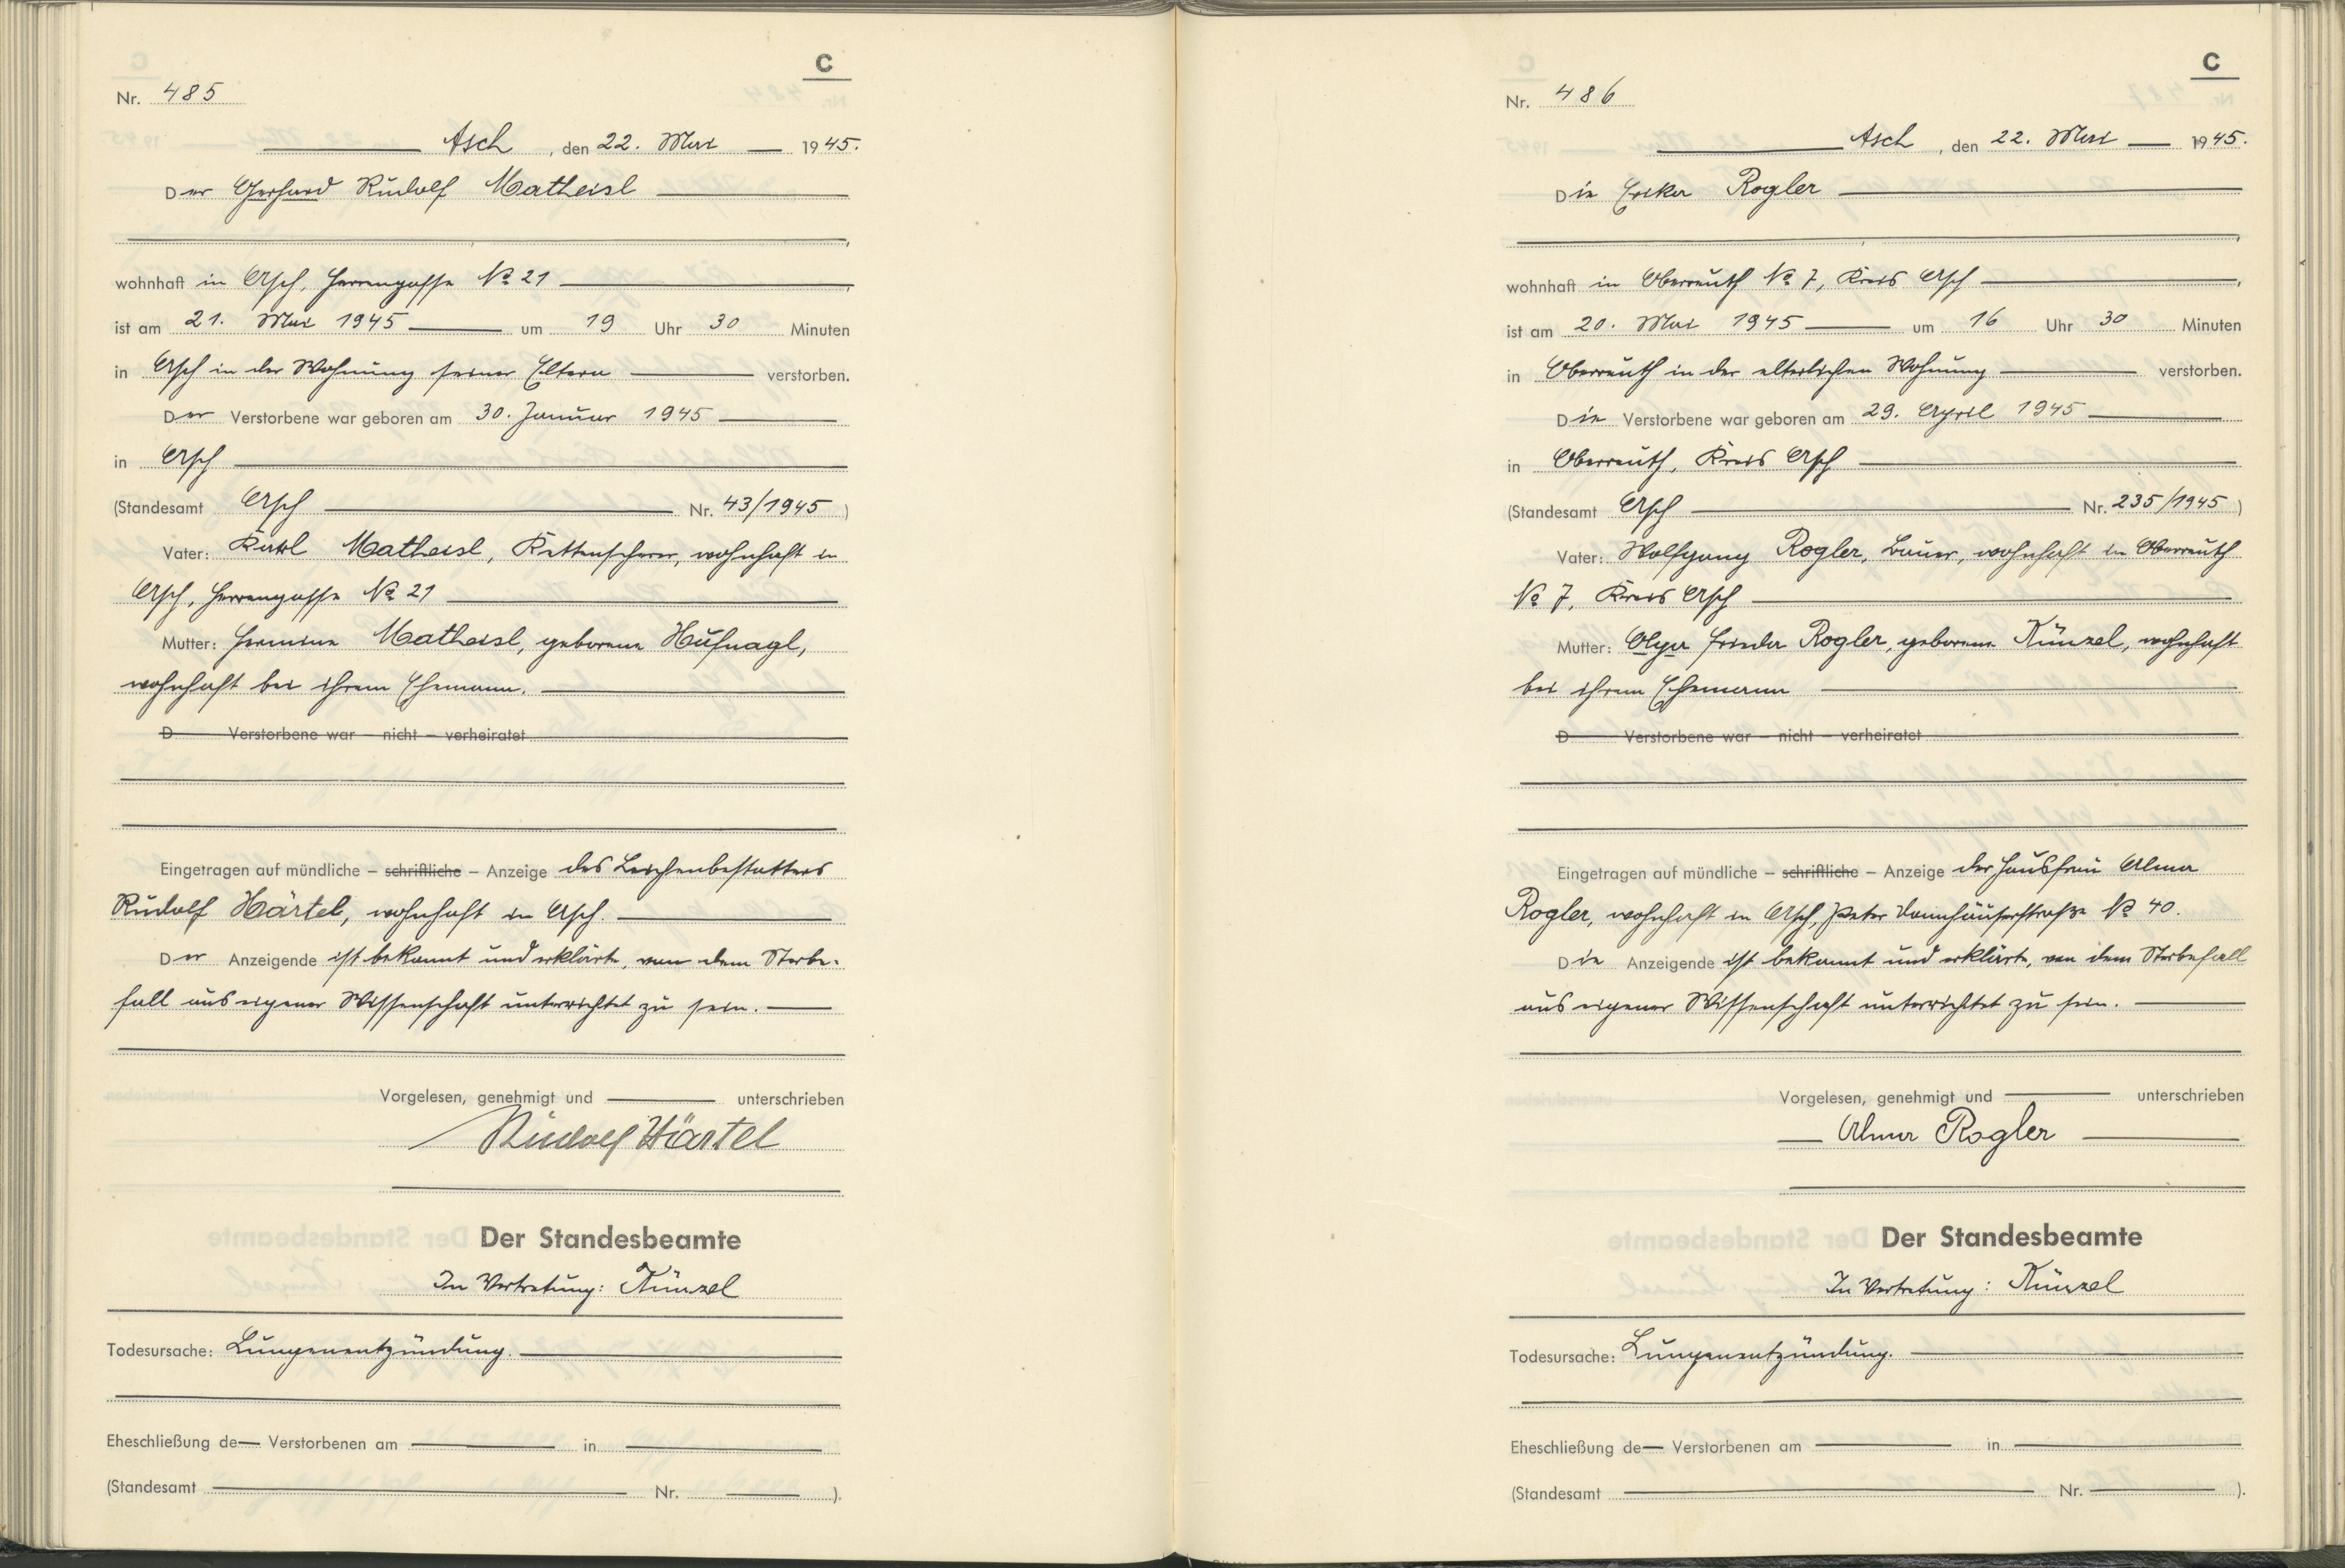 C
Nr. 485
Asch, den 22. Mai 1945.
Der Gerhard Rudolf Matheisl
wohnhaft in Asch, Herrengasse No 21
ist am 21. Mai 1945 um 19 Uhr 30 Minuten
in Asch in der Wohnung seiner Eltern verstorben.
Der Verstorbene war geboren am 30. Januar 1945
in Asch
(Standesamt Asch Nr. 43/1945)
Vater: Karl Matheisl, Kettenscherer, wohnhaft in
Asch, Herrengasse No 21
Mutter: Hermine Matheisl, geborene Hufnagl,
wohnhaft bei ihrem Ehemann.
D Verstorbene war – nicht – verheiratet
Eingetragen auf mündliche – schriftliche – Anzeige des Leichenbestatters
Rudolf Härtel, wohnhaft in Asch.
Der Anzeigende ist bekannt und erklärte, von dem Sterbe-
fall aus eigener Wissenschaft unterrichtet zu sein.
Vorgelesen, genehmigt und unterschrieben
Rudolf Härtel
Der Standesbeamte
In Vertretung: Künzel
Todesursache: Lungenentzündung.
Eheschließung de Verstorbenen am in
(Standesamt Nr. ).
C
Nr. 486
Asch, den 22. Mai 1945.
Die Erika Rogler
wohnhaft in Oberreuth No 7, Kreis Asch
ist am 20. Mai 1945 um 16 Uhr 30 Minuten
in Oberreuth in der elterlichen Wohnung verstorben.
Die Verstorbene war geboren am 29. April 1945
in Oberreuth, Kreis Asch
(Standesamt Asch Nr. 235/1945)
Vater: Wolfgang Rogler, Bauer, wohnhaft in Oberreuth
No 7, Kreis Asch
Mutter: Olga Frieda Rogler, geborene Künzel, wohnhaft
bei ihrem Ehemann
D Verstorbene war – nicht – verheiratet
Eingetragen auf mündliche – schriftliche – Anzeige der Hausfrau Alma
Rogler, wohnhaft in Asch, Peter Donnhäuserstraße No 40.
Die Anzeigende ist bekannt und erklärte, von dem Sterbefall
aus eigener Wissenschaft unterrichtet zu sein.
Vorgelesen, genehmigt und unterschrieben
Alma Rogler
Der Standesbeamte
In Vertretung: Künzel
Todesursache: Lungenentzündung.
Eheschließung de Verstorbenen am in
(Standesamt Nr. ).